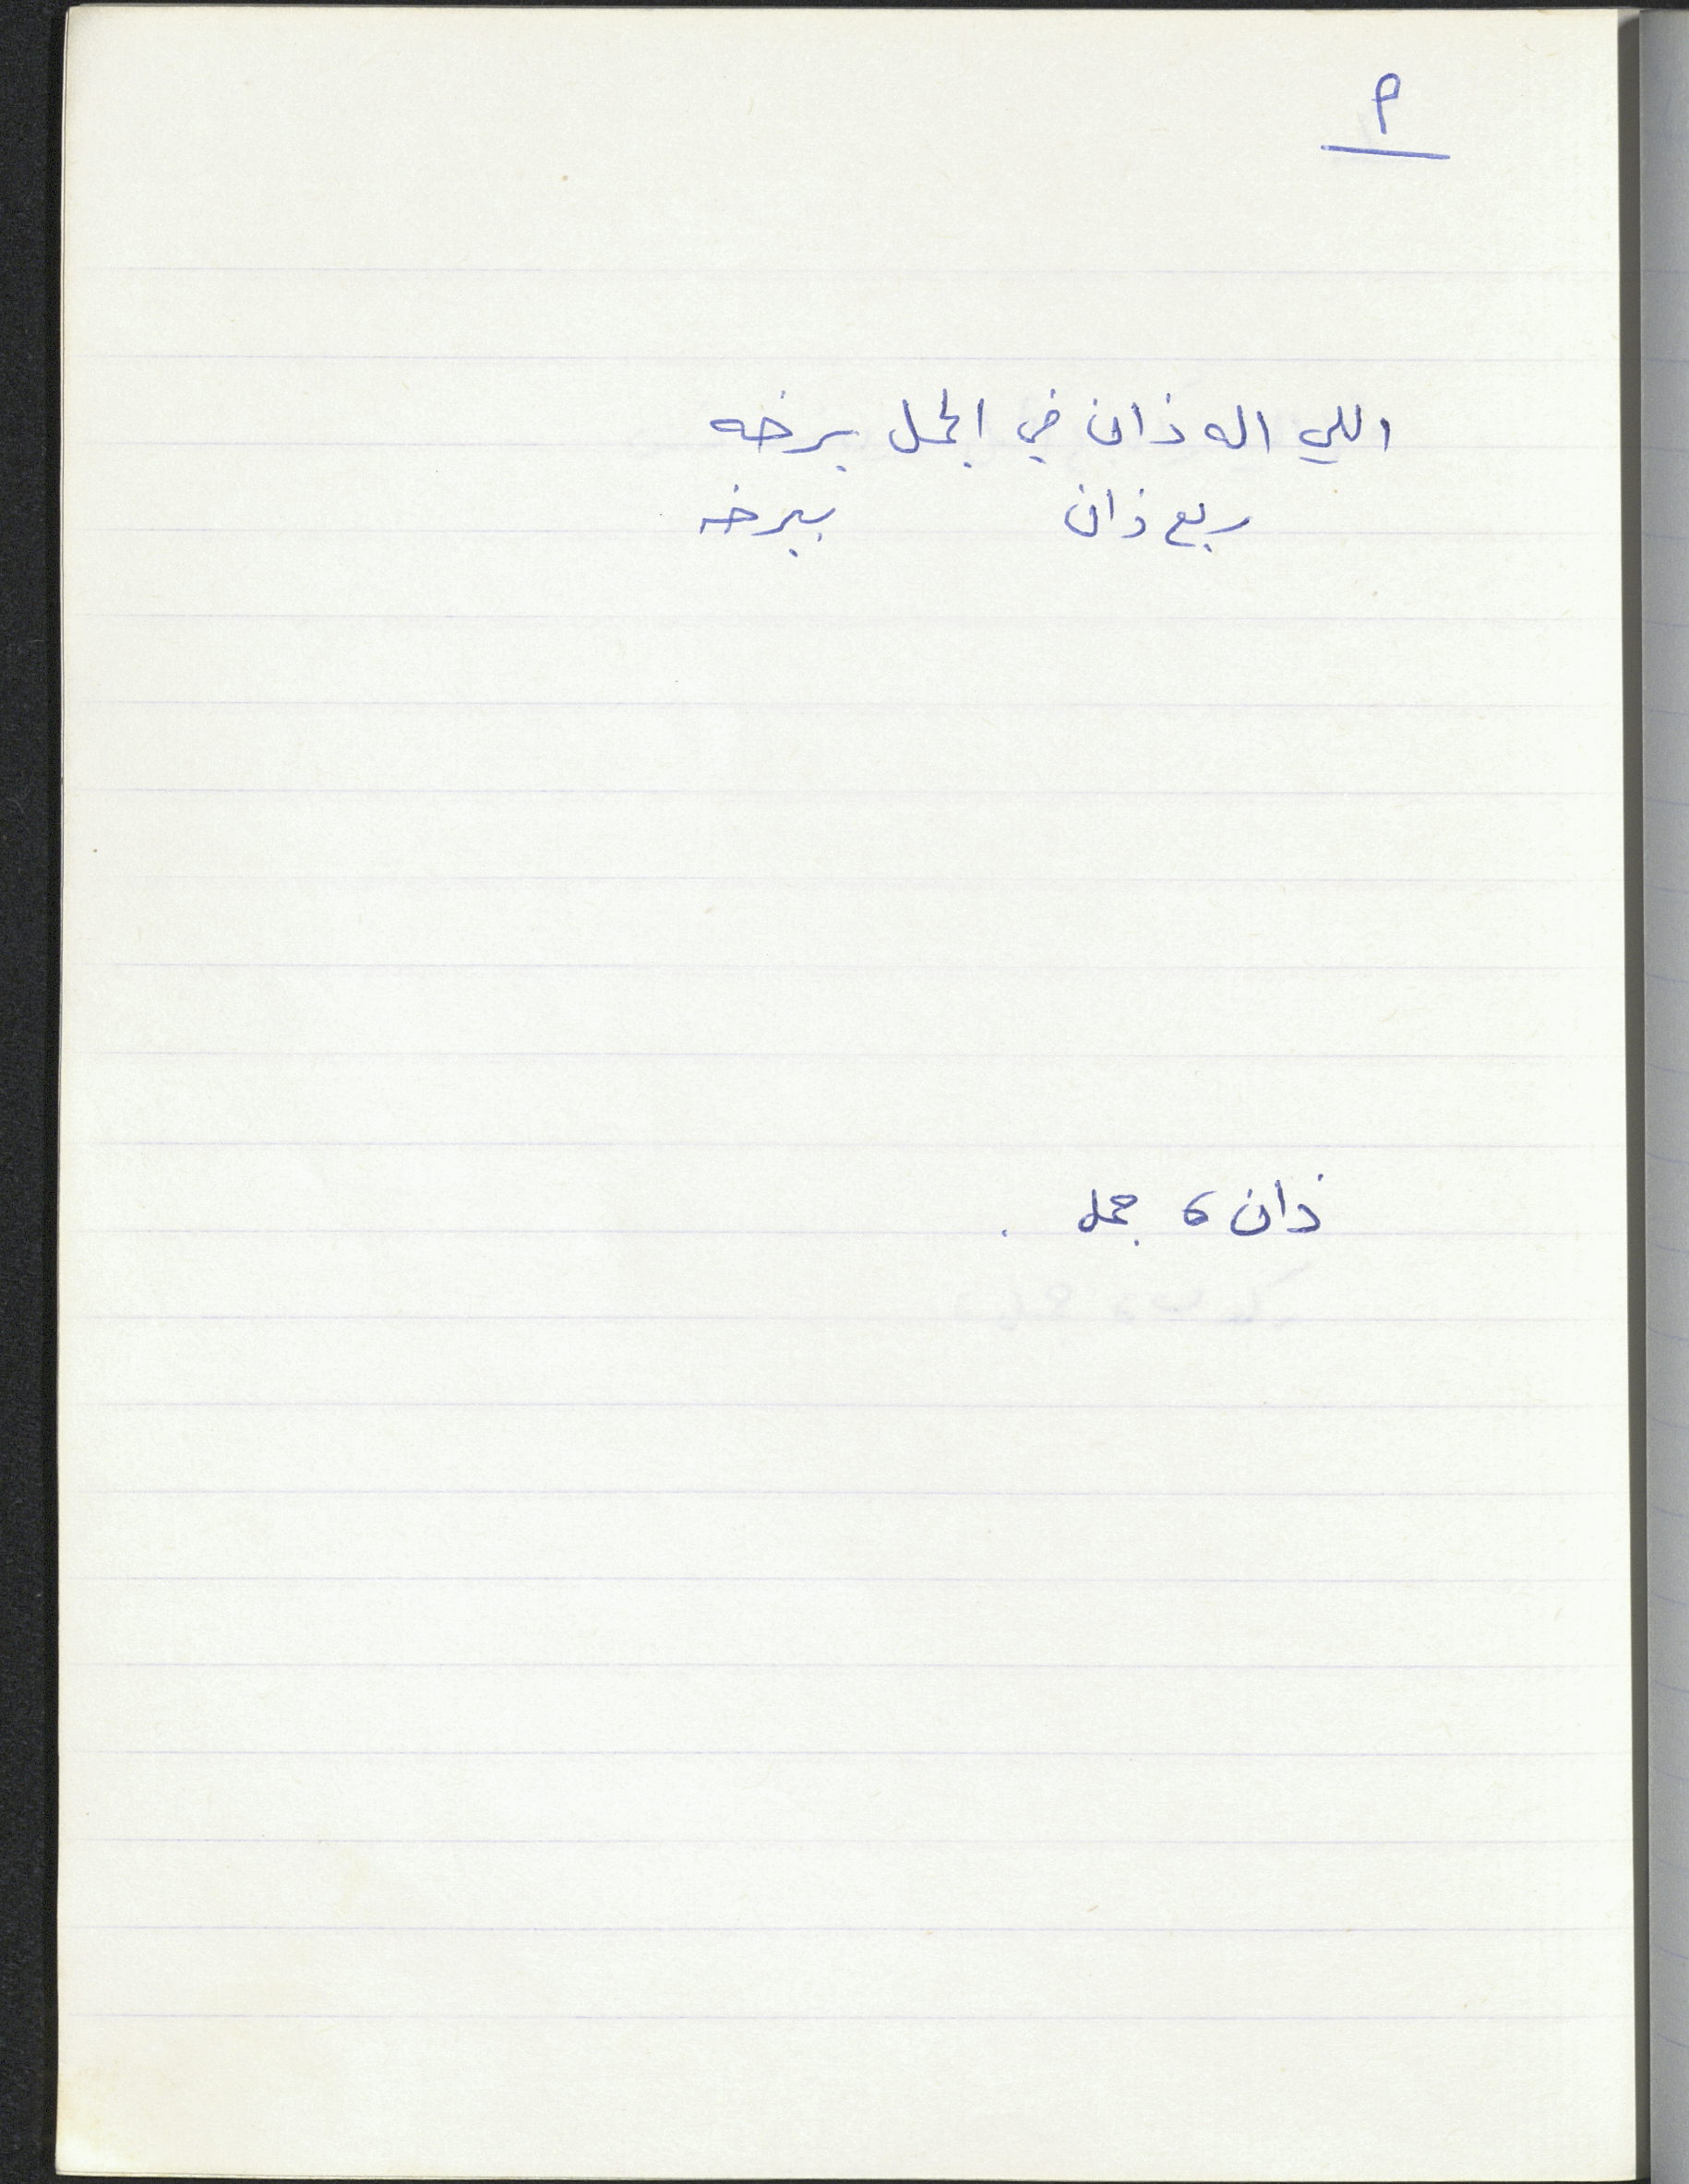 م
اللي اله ذان في الجمل برخه
ربع ذان بيرخه
ذان ، جمل .